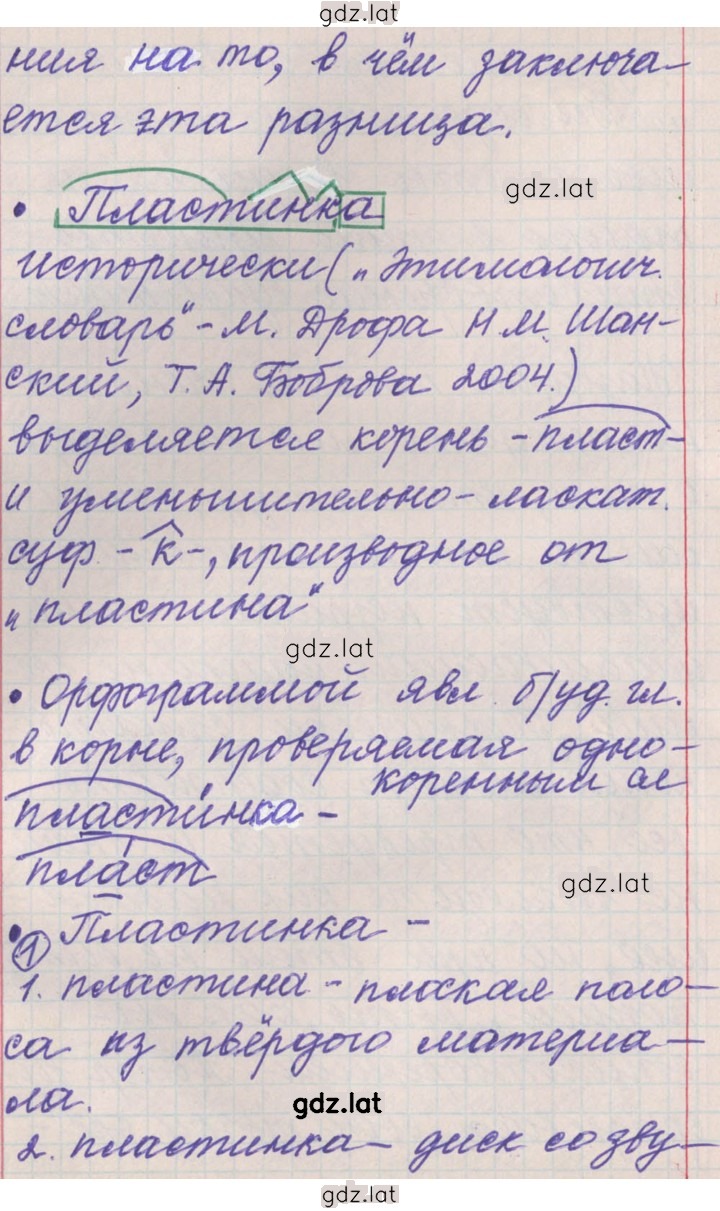 gdz.lat
ния на то, в чём заключа-
ется эта разница.
gdz.lat
• Пластинка
исторически („Этимологич.
словарь" - М. Дрофа Н.М. Шан-
ский, Т.А. Боброва 2004.)
выделяется корень -пласт-
и уменьшительно-ласкат.
суф -к-, производное от
„пластина"
gdz.lat
• Орфограммой явл. б/уд. гл.
в корне, проверяемая одно-
коренным сл
пластинка -
пласт
gdz.lat
• Пластинка -
1
1. пластина - плоская поло-
са из твёрдого материа-
ла.
gdz.lat
2. пластинка - диск со зву-
gdz.lat